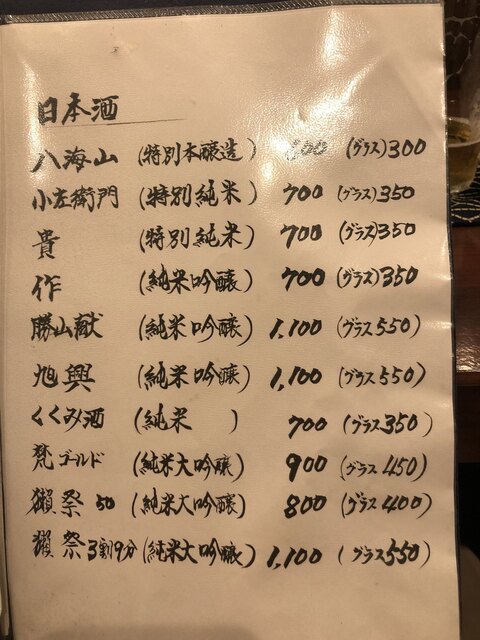 日本酒
八海山 (特別本醸造) 600 (グラス)300
小左衛門 (特別純米) 700 (グラス)350
貴 (特別純米) 700 (グラス)350
作 (純米吟醸) 700 (グラス)350
勝山献 (純米吟醸) 1,100 (グラス550)
旭興 (純米吟醸) 1,100 (グラス550)
くくみ酒 (純米 ) 700 (グラス350)
梵ゴールド (純米大吟醸) 900 (グラス450)
獺祭 50 (純米大吟醸) 800 (グラス400)
獺祭3割9分 (純米大吟醸) 1,100 (グラス550)